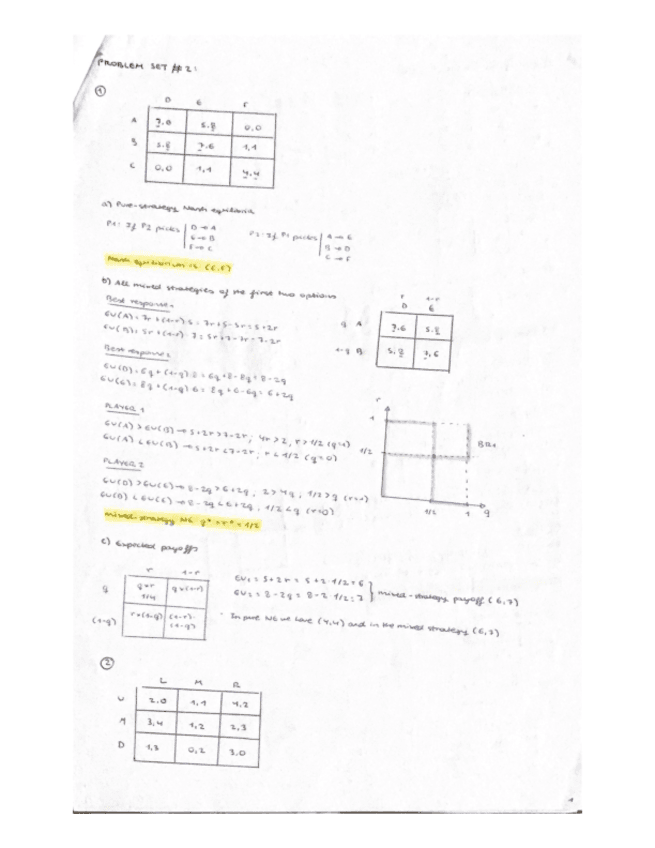 PROBLEM SET #2:
①
D E F
A 7,6 5,8 0,0
B 5,8 7,6 1,1
C 0,0 1,1 4,4
a) Pure-strategy Nash equilibria
P1: If P2 picks D → A P2: If P1 picks A → E
E → B B → D
F → C C → F
Nash equilibrium is (C,F)
b) All mixed strategies of the first two options
Best response₁
EU(A) = 7r + (1-r)·5 = 7r + 5 - 5r = 5 + 2r
EU(B) = 5r + (1-r)·7 = 5r + 7 - 7r = 7 - 2r
r 1-r
D E
q A 7,6 5,8
1-q B 5,8 7,6
Best response₂
EU(D) = 6q + (1-q)·8 = 6q + 8 - 8q = 8 - 2q
EU(E) = 8q + (1-q)·6 = 8q + 6 - 6q = 6 + 2q
PLAYER 1
EU(A) > EU(B) → 5 + 2r > 7 - 2r ; 4r > 2, r > 1/2 (q=1)
EU(A) < EU(B) → 5 + 2r < 7 - 2r ; r < 1/2 (q=0)
PLAYER 2
EU(D) > EU(E) → 8 - 2q > 6 + 2q, 2 > 4q, 1/2 > q (r=1)
EU(D) < EU(E) → 8 - 2q < 6 + 2q, 1/2 < q (r=0)
mixed-strategy NE q* = r* = 1/2
r
1
1/2
BR₁
1/2 1 q
c) Expected payoffs
r 1-r
q q×r 1/4 q×(1-r)
(1-q) r×(1-q) (1-r)·(1-q)
EU₁ = 5 + 2r = 5 + 2·1/2 = 6
EU₂ = 8 - 2q = 8 - 2·1/2 = 7
mixed-strategy payoff (6,7)
In pure NE we have (4,4) and in the mixed strategy (6,7)
②
L M R
U 2,0 1,1 4,2
M 3,4 1,2 2,3
D 1,3 0,2 3,0